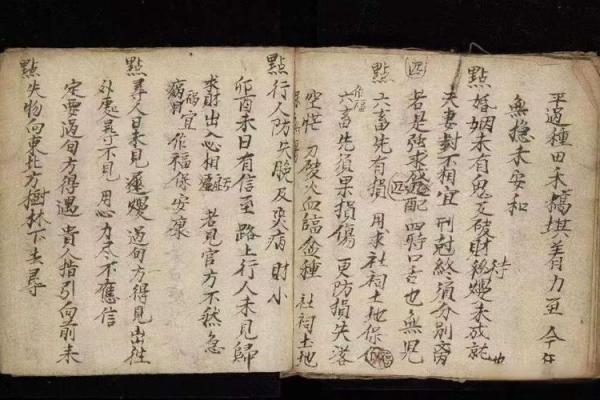 平過種田禾 着力至 今年
無穩未安和
點 婚姻未有鬼交破財 未成就
夫妻對不相宜 刑尅終須分別
若是強求 配 四時口舌也無兒
點 六畜先有損 用求社祠土地保
六畜先須果損傷 更防損失落
空慌刀 火血臨 種 社祠土地
點 行人防失脫及災病 財小
卯酉未日有信至 路上行人未見歸
求財出入心相 若見官方不然急
病 宜作福保安康
點 尋人日未見 遲嫂過旬方得見出往
外處尋不見 用心力尽不應信
定要過旬方得遇 貴人指引向前來
點失物向東北方樹林下去尋